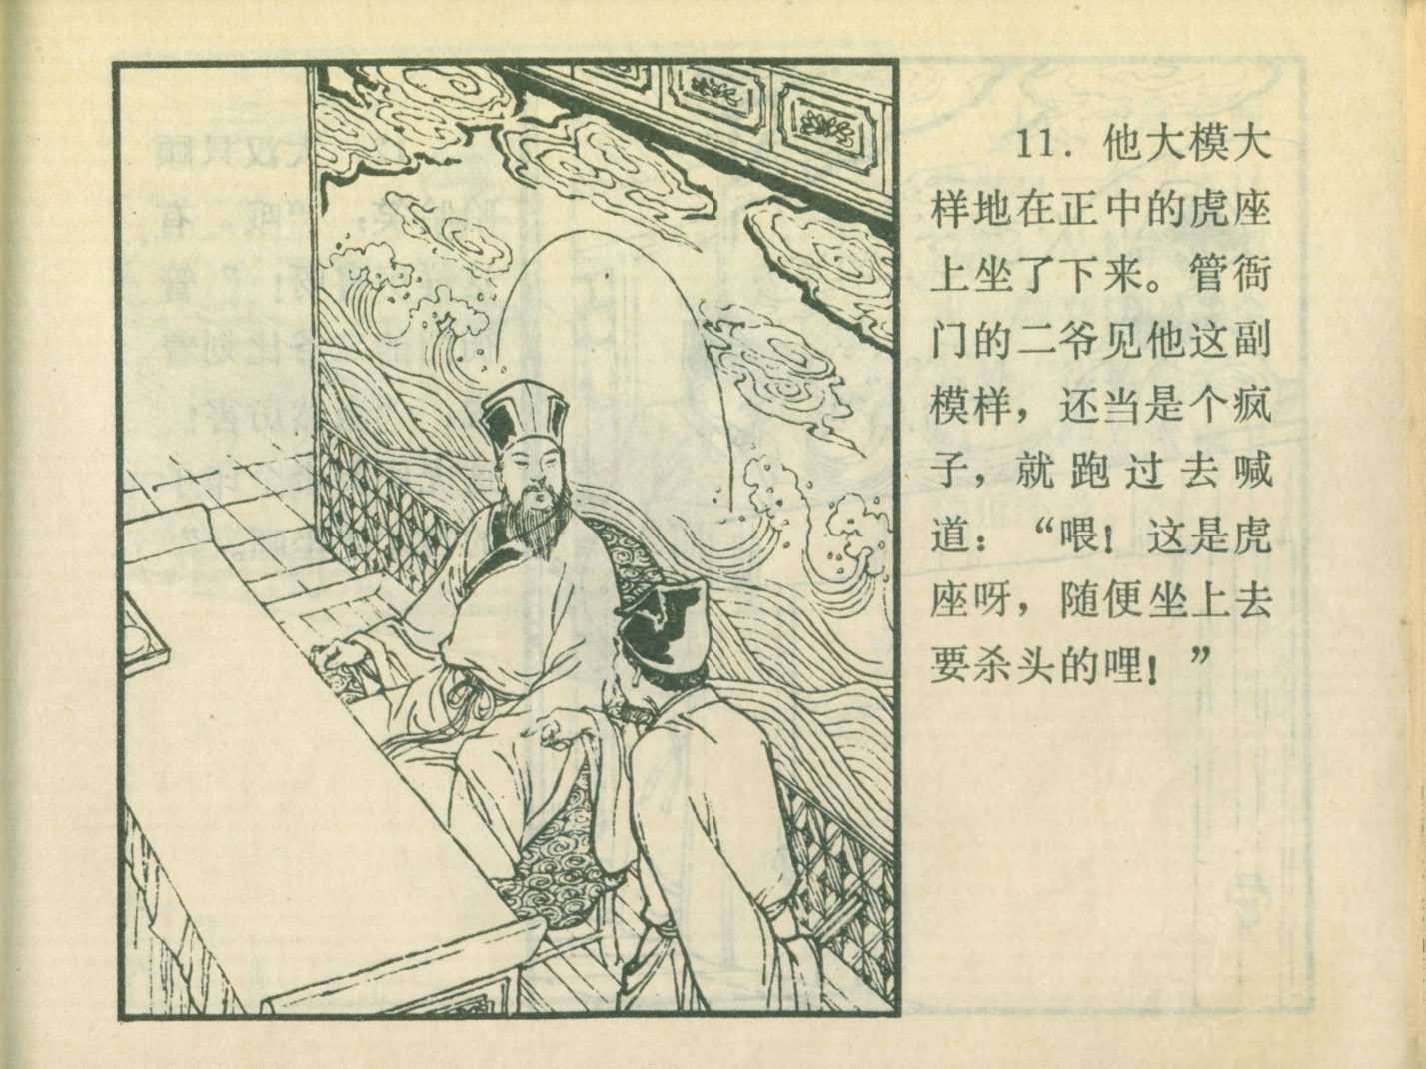 11. 他大模大
样地在正中的虎座
上坐了下来。管衙
门的二爷见他这副
模样，还当是个疯
子，就跑过去喊
道：“喂！这是虎
座呀，随便坐上去
要杀头的哩！”